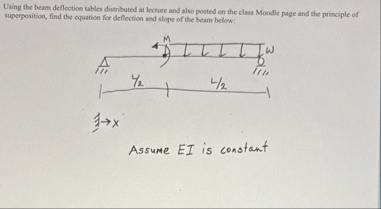 Using the beam deflection tables distributed at lecture and also posted on the class Moodle page and the principle of
superposition, find the equation for deflection and slope of the beam below:
M
W
L/2
x
Assume EI is constant